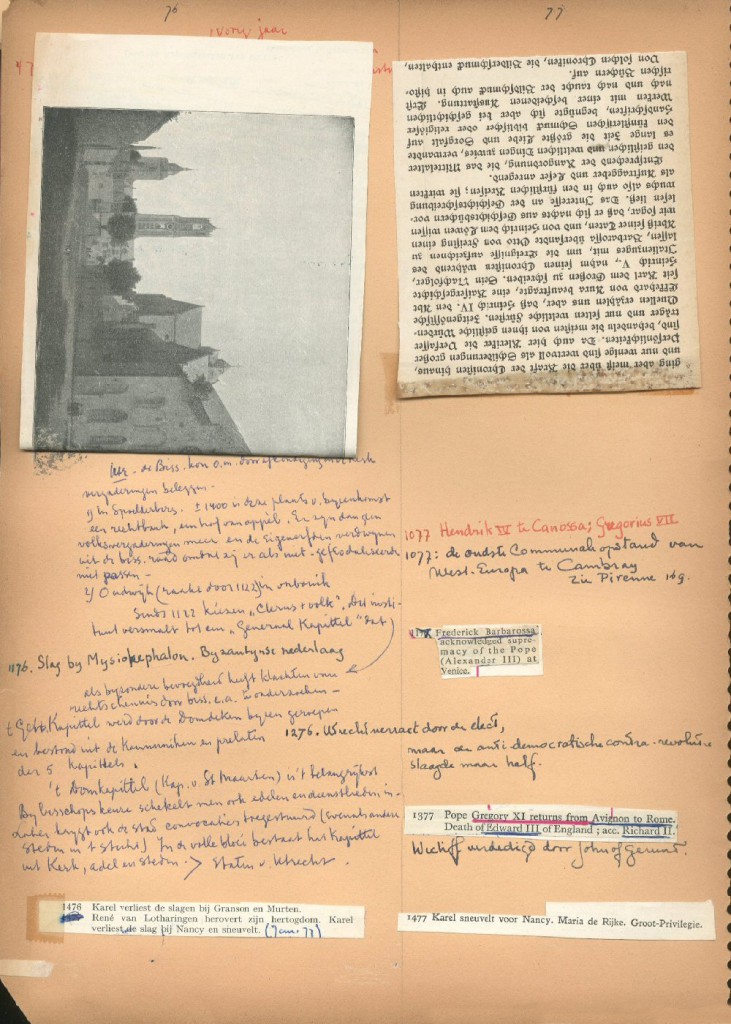 76
77
vorig jaar
Von solchen Chroniken, die Bilderschmuck enthalten,
ging aber meist über die Kraft der Chronisten hinaus,
und nur wenige sind wertvoll als Schilderungen großer
Persönlichkeiten. Da auch hier Kleriker die Verfasser
sind, behandeln die meisten von ihnen geistliche Würden-
träger und nur selten weltliche Fürsten. Zeitgenössische
Quellen erzählen uns aber, daß Heinrich IV. den Abt
Effehard von Aura beauftragte, eine Kaisergeschichte
seit Karl dem Großen zu schreiben. Sein Nachfolger,
Heinrich V., nahm seinen Chronisten während des
Italienzuges mit, um die Ereignisse aufzeichnen zu
lassen, Barbarossa übersandte Otto von Freising einen
Abriß seiner Taten, und von Heinrich dem Löwen wissen
wir sogar, daß er sich nachts aus Geschichtsbüchern vor-
lesen ließ. Das Interesse an der Geschichtsschreibung
wuchs also auch in den fürstlichen Kreisen; sie wirkten
als Auftraggeber und Leser anregend.
Entsprechend der Rangordnung, die das Mittelalter
den geistlichen und weltlichen Dingen zuwies, verwandte
es lange Zeit die größte Liebe und Sorgfalt auf
den künstlerischen Schmuck biblischer oder religiöser
Handschriften, begnügte sich aber bei geschichtlichen
Werken mit einer bescheidenen Ausstattung. Erst
nach und nach taucht der Bildschmuck auch in histo-
rischen Büchern auf.
de Biss. kon o.m. door
vergaderingen beleggen.
± 1400 is deze plaats v. byeenkomst
een rechtbank, een hof van appèl. Er zyn dan geen
volksvergaderingen meer en de eigenerfden verdwynen
uit de biss. raad omdat zij er als niet-gefeodaliseerde
niet passen -
Oudwijk (raakt door 1122) in onbruik
Sinds 1122 kiezen "Clerus + volk". Dit insti-
tuut versmalt tot een "Generaal Kapittel" dat
1176. Slag by Myriokephalon. Byzantynse nederlaag
als byzondere bevoegdheid heeft klachten van
rechtschennis door biss. e.a. te onderzoeken -
't Gen. Kapittel werd door de Domdeken byeen geroepen
en bestond uit de Kanunniken en prelaten
der 5 kapittels.
't Domkapittel (Kap. v. St Maarten) is 't belangrykst
By bisschopskeuze schakelt men ook edelen en dienstlieden in.
Later krygt ook de stad convocaties toegestuurd (evenals andere
steden in 't sticht) In de volle bloei bestaat het Kapittel
uit Kerk, adel en steden. > Staten v. Utrecht.
1476 Karel verliest de slagen bij Granson en Murten.
René van Lotharingen herovert zijn hertogdom. Karel
verliest de slag bij Nancy en sneuvelt. (Jan. 77)
1077 Hendrik IV te Canossa; Gregorius VII
1077: de oudste Communale opstand van
West-Europa te Cambray
zie Pirenne 169.
Frederick Barbarossa
acknowledged supre-
macy of the Pope
(Alexander III) at
Venice.
1276. Utrecht verract door de elect,
maar de anti democratische contra-revolutie
slaagde maar half.
1377 Pope Gregory XI returns from Avignon to Rome.
Death of Edward III of England; acc. Richard II.
Wiclif verdedigd door John of Gaunt.
1477 Karel sneuvelt voor Nancy. Maria de Rijke. Groot-Privilegie.